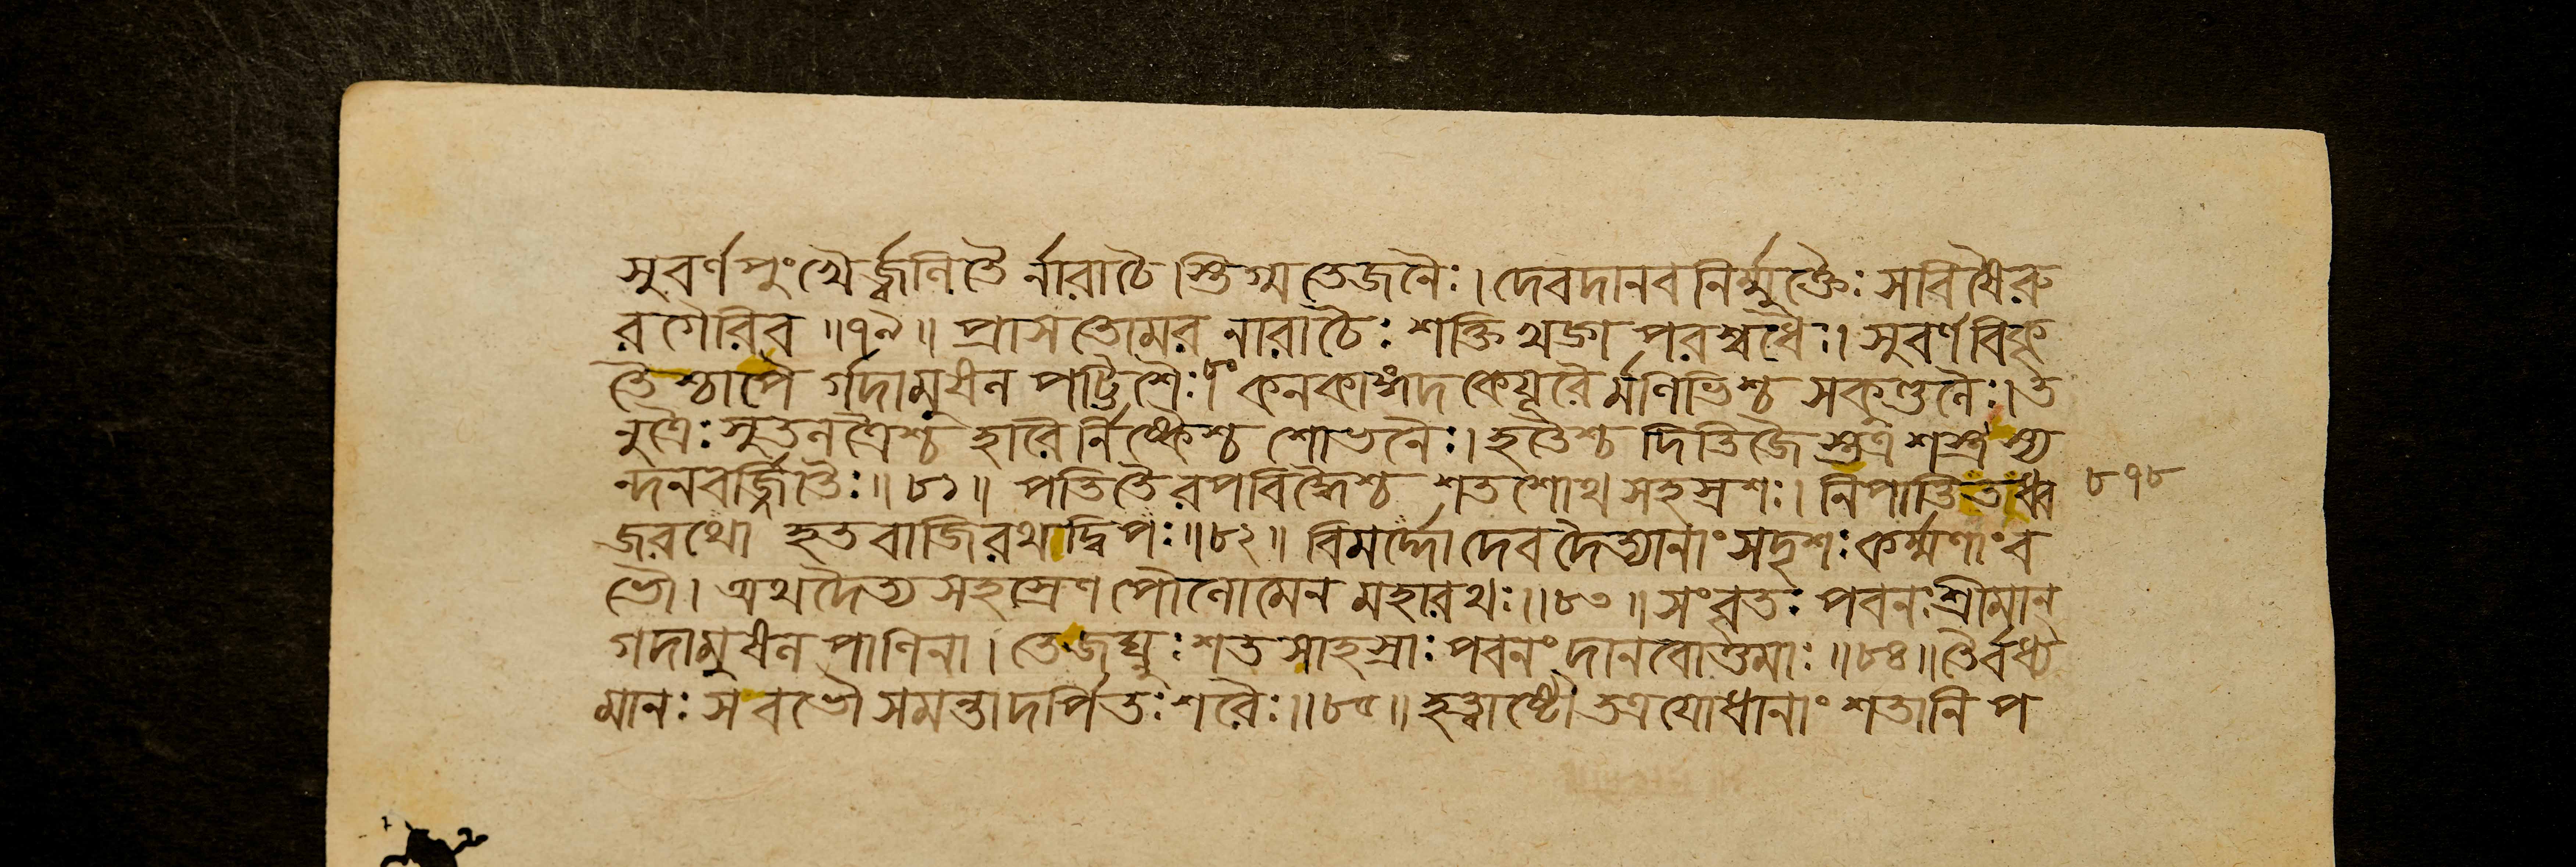 সুবর্ণপুংখৈর্জ্বলিতৈ র্নারাচৈ স্তিগ্মতেজনৈঃ। দেবদানবনির্ম্মুক্তৈঃ সবিষৈরু
রগৈরিব ॥৭৯॥ প্রাসতোমর নারাচৈঃ শক্তিখড্গ পরশ্বধৈঃ। সুবর্ণবিকৃ
তৈশ্চাপৈ র্গদামুষল পট্টিশৈঃ। কনকাঙ্গদকেয়ূরৈর্মণিভিশ্চ সকুণ্ডলৈঃ। ত
নুত্রৈঃ সুতলত্রৈশ্চ হারৈর্নিষ্কৈশ্চ শোভনৈঃ। হতৈশ্চ দিতিজৈস্তত্র শস্ত্রস্য
ন্দনবর্জ্জিতৈঃ॥৮১॥ পতিতৈরপবিদ্ধৈশ্চ শতশোথ সহস্রশঃ। নিপাতিতধ্ব
জরথো হতবাজিরথদ্বিপঃ॥৮২॥ বিমর্দ্দো দেবদৈত্যানাং সদৃশঃ কর্ম্মণাং ব
ভৌ। অথ দৈত্যসহস্রেণ পৌলোমেন মহারথঃ॥৮৩॥ সংবৃতঃ পবনঃ শ্রীমান্
গদামুষলপাণিনা। তেজঘ্নুঃ শতসাহস্রাঃ পবনং দানবোত্তমাঃ॥৮৪॥ তৈর্বধ্য
মানঃ স বভৌ সমন্তাদর্পিতঃ শরৈঃ॥৮৫॥ হত্বাষ্টৌ তত্র যোধানাং শতানি প
৮৭৮